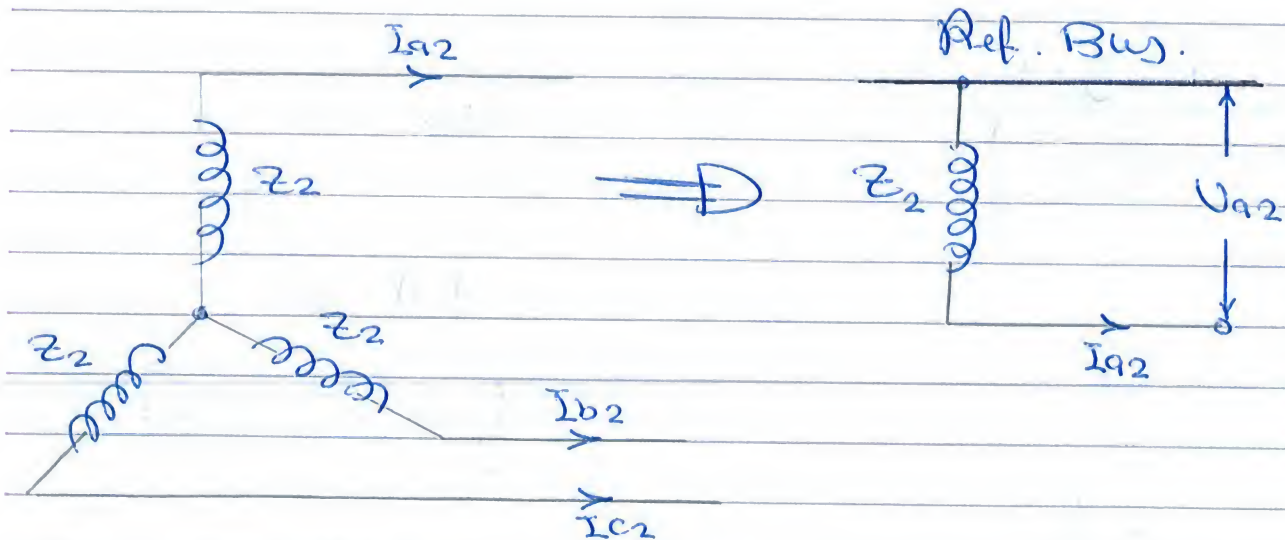 Ia2
Ref. Bus.
Z2
Z2
Va2
Z2
Z2
Ia2
Ib2
Ic2